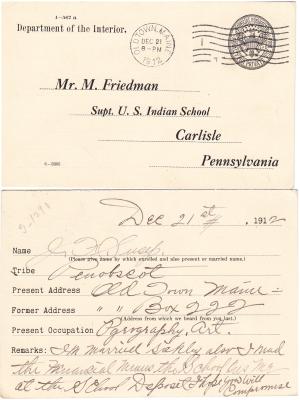 1-567 a
Department of the Interior.
OLD TOWN, MAINE
DEC 21
8-PM
1912
Mr. M. Friedman
Supt. U. S. Indian School
Carlisle
Pennsylvania
Dec 21st, 1912
Name
(Please give name by which enrolled and also present or married name.)
Tribe Penobscot
Present Address Old Town Maine
Former Address " " Box 222
(Address from which we heard from you last.)
Present Occupation Pyrography, Art.
Remarks: I'm married also I had
the the School
at the School Deposit I hope you will
Compromise